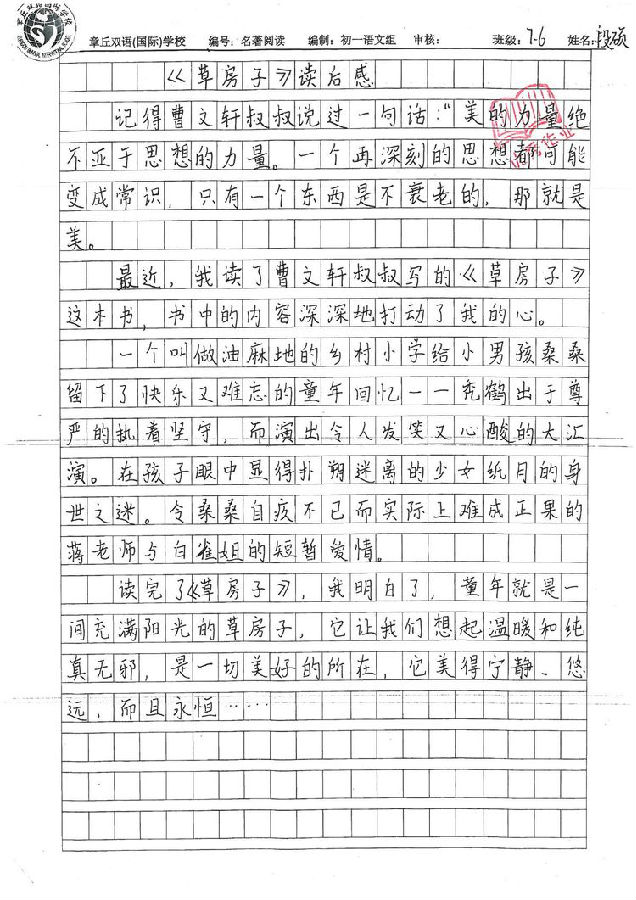 章丘双语(国际)学校 编号:名著阅读 编制:初一语文组 审核: 班级:7.6 姓名:段硕
《草房子》读后感
记得曹文轩叔叔说过一句话:“美的力量绝
不亚于思想的力量。一个再深刻的思想都可能
变成常识,只有一个东西是不衰老的,那就是
美。
最近,我读了曹文轩叔叔写的《草房子》
这本书,书中的内容深深地打动了我的心。
一个叫做油麻地的乡村小学给小男孩桑桑
留下了快乐又难忘的童年回忆——秃鹤出于尊
严的执着坚守,而演出令人发笑又心酸的大汇
演。在孩子眼中显得扑朔迷离的少女纸月的身
世之迷。令桑桑自疚不已而实际上难成正果的
蒋老师与白雀姐的短暂爱情。
读完了《草房子》,我明白了,童年就是一
间充满阳光的草房子,它让我们想起温暖和纯
真无邪,是一切美好的所在,它美得宁静、悠
远,而且永恒……